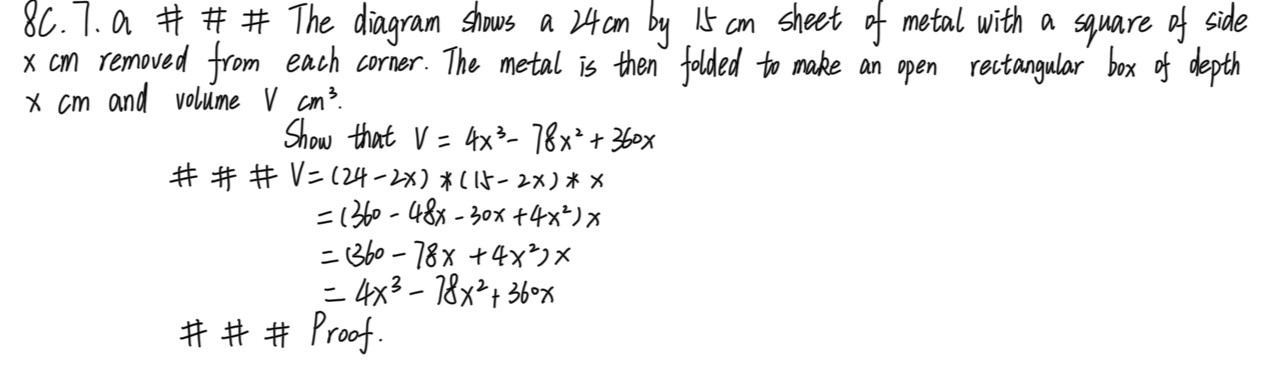 8C.7.a # # # The diagram shows a 24cm by 15 cm sheet of metal with a square of side
x cm removed from each corner. The metal is then folded to make an open rectangular box of depth
x cm and volume V cm³.
Show that V = 4x³- 78x² + 360x
# # # V= (24-2x) * (15-2x) * x
= (360 - 48x - 30x + 4x²) x
= (360 - 78x + 4x²) x
= 4x³ - 78x² + 360x
# # # Proof.